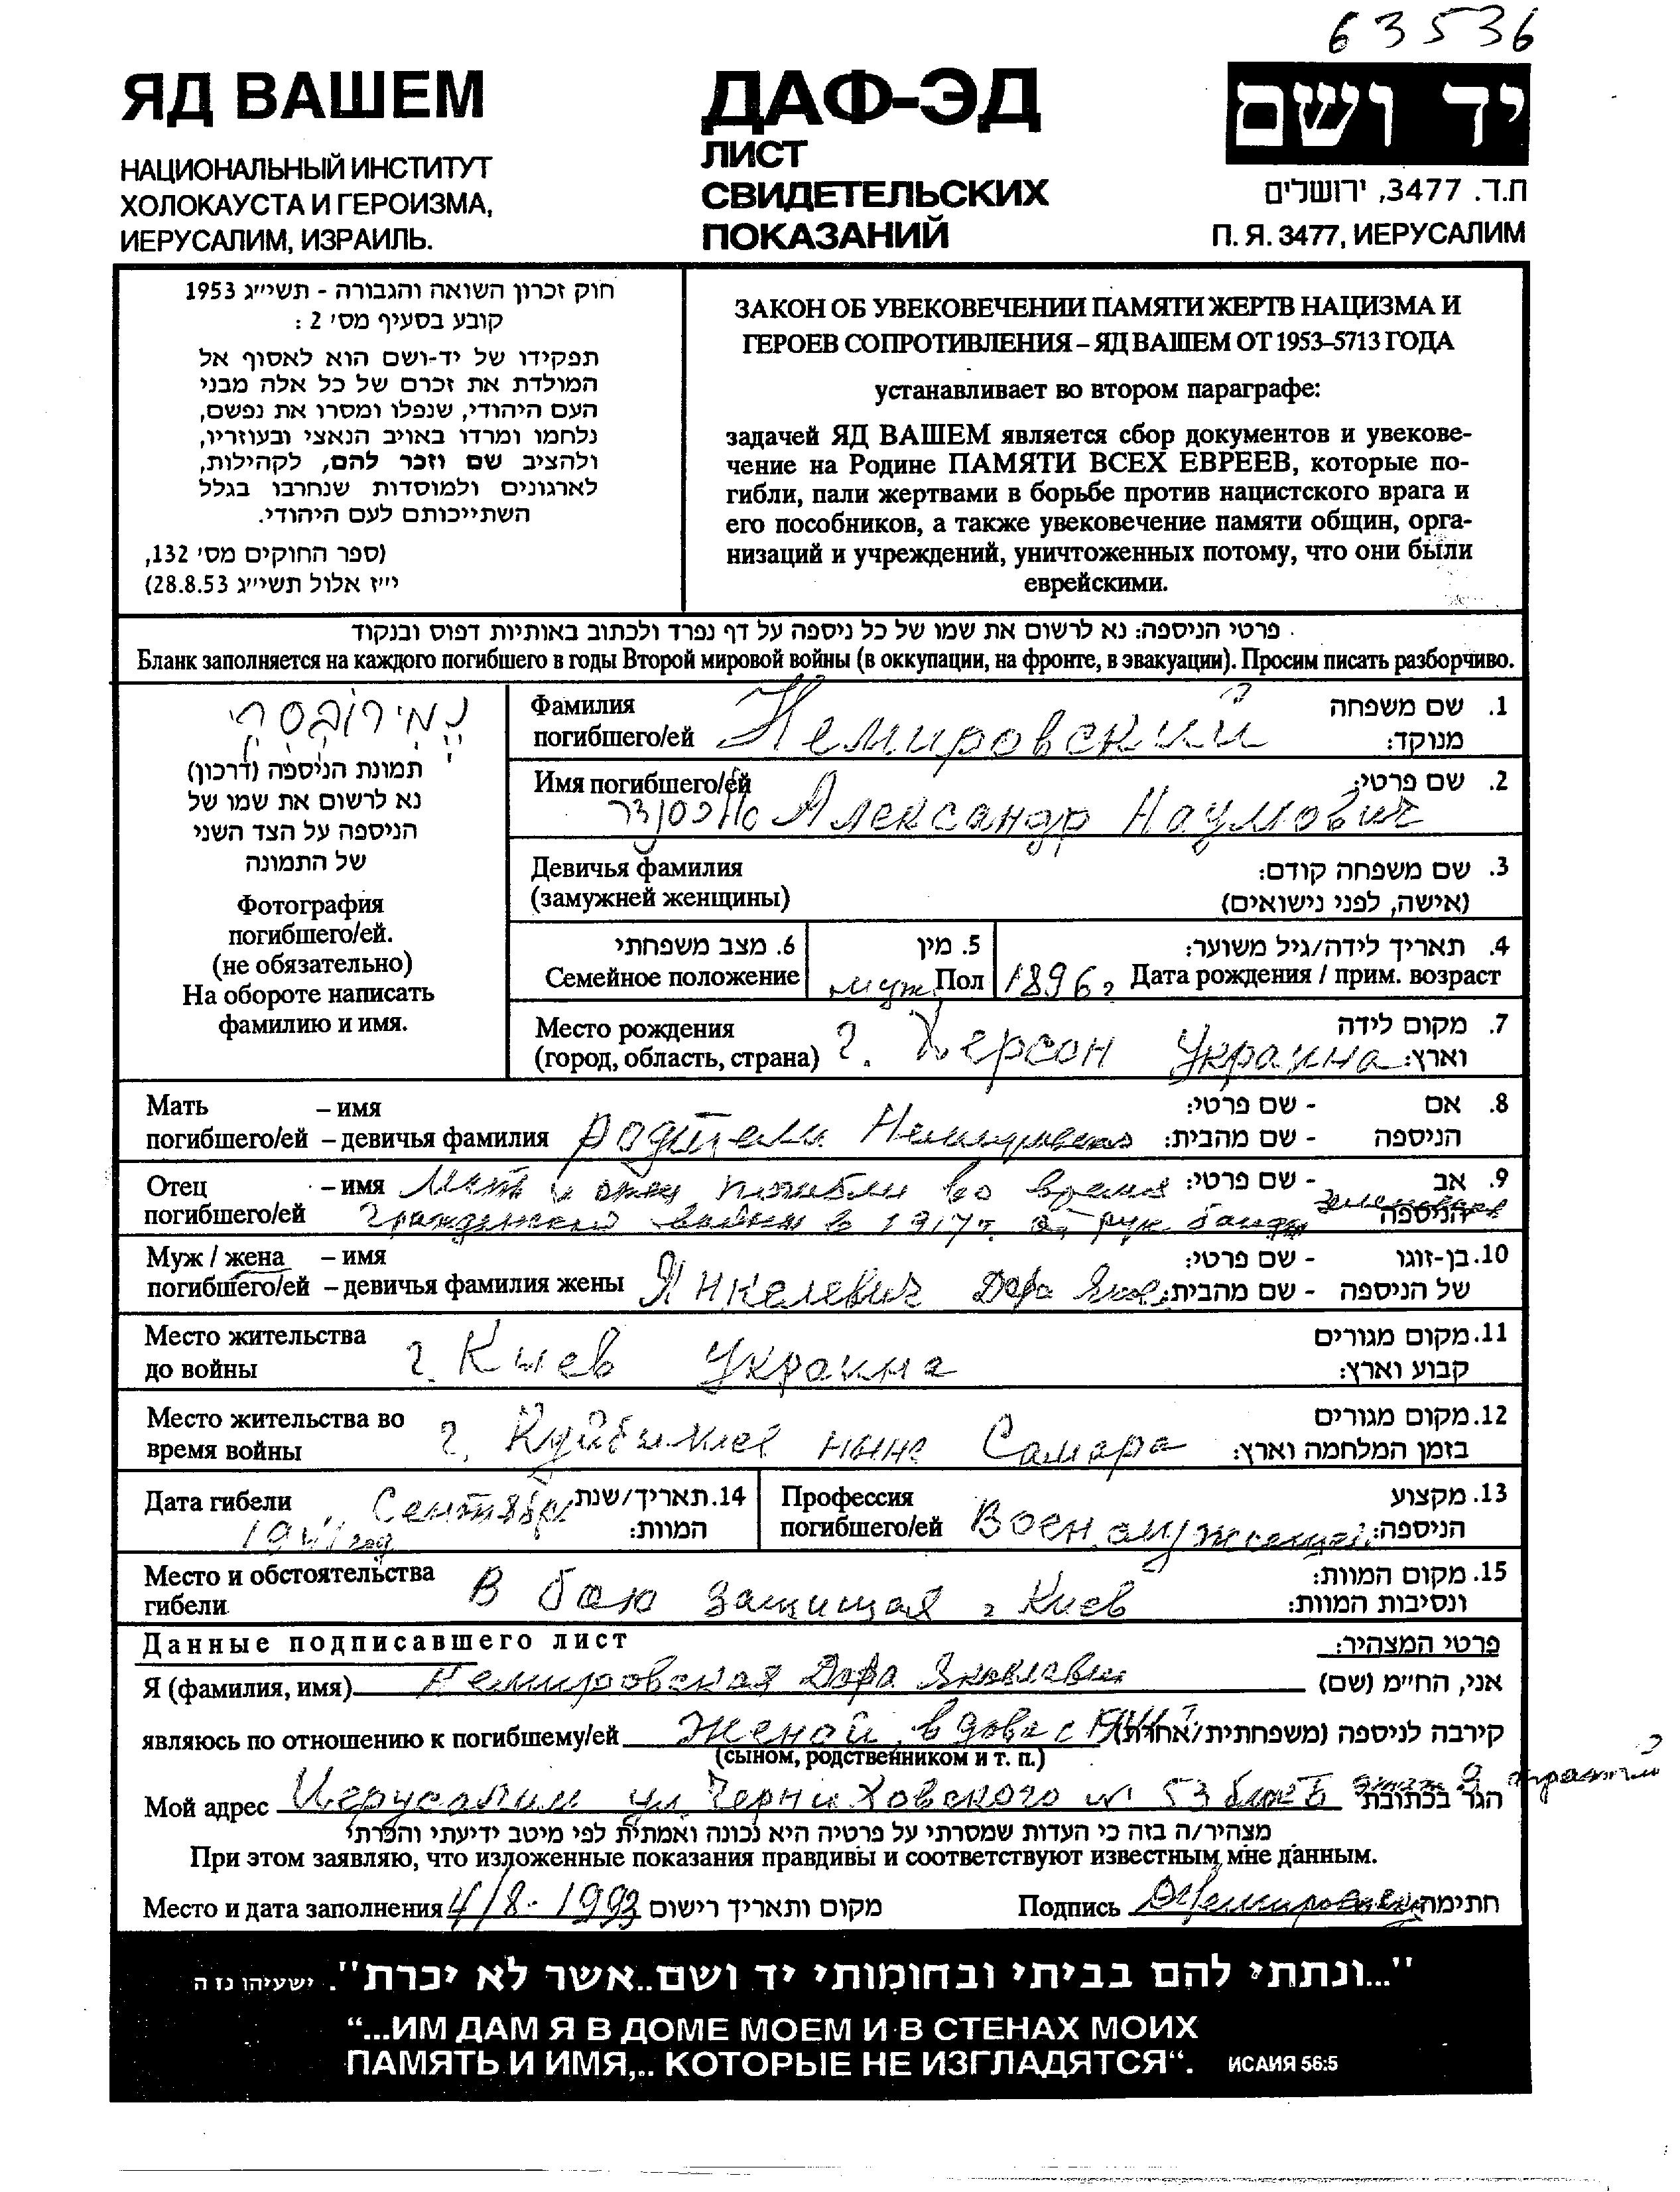 63536
ЯД ВАШЕМ
НАЦИОНАЛЬНЫЙ ИНСТИТУТ
ХОЛОКАУСТА И ГЕРОИЗМА,
ИЕРУСАЛИМ, ИЗРАИЛЬ.
ДАФ-ЭД
ЛИСТ
СВИДЕТЕЛЬСКИХ
ПОКАЗАНИЙ
יד ושם
ת.ד. 3477, ירושלים
П. Я. 3477, ИЕРУСАЛИМ
חוק זכרון השואה והגבורה - תשי״ג 1953
קובע בסעיף מס׳ 2 :
תפקידו של יד-ושם הוא לאסוף אל
המולדת את זכרם של כל אלה מבני
העם היהודי, שנפלו ומסרו את נפשם,
נלחמו ומרדו באויב הנאצי ובעוזריו,
ולהציב שם וזכר להם, לקהילות,
לארגונים ולמוסדות שנחרבו בגלל
השתייכותם לעם היהודי.
(ספר החוקים מס׳ 132,
י״ז אלול תשי״ג 28.8.53)
ЗАКОН ОБ УВЕКОВЕЧЕНИИ ПАМЯТИ ЖЕРТВ НАЦИЗМА И
ГЕРОЕВ СОПРОТИВЛЕНИЯ – ЯД ВАШЕМ ОТ 1953–5713 ГОДА
устанавливает во втором параграфе:
задачей ЯД ВАШЕМ является сбор документов и увекове-
чение на Родине ПАМЯТИ ВСЕХ ЕВРЕЕВ, которые по-
гибли, пали жертвами в борьбе против нацистского врага и
его пособников, а также увековечение памяти общин, орга-
низаций и учреждений, уничтоженных потому, что они были
еврейскими.
פרטי הניספה: נא לרשום את שמו של כל ניספה על דף נפרד ולכתוב באותיות דפוס ובנקוד
Бланк заполняется на каждого погибшего в годы Второй мировой войны (в оккупации, на фронте, в эвакуации). Просим писать разборчиво.
נמירובסקי
תמונת הניספה (דרכון)
נא לרשום את שמו של
הניספה על הצד השני
של התמונה
Фотография
погибшего/ей.
(не обязательно)
На обороте написать
фамилию и имя.
Фамилия Немировский שם משפחה .1
погибшего/ей מנוקד:
Имя погибшего/ей שם פרטי: .2
Александр Наумович
Девичья фамилия שם משפחה קודם: .3
(замужней женщины) (אישה, לפני נישואים)
6. מצב משפחתי 5. מין תאריך לידה/גיל משוער: .4
Семейное положение муж Пол 1896 г Дата рождения / прим. возраст
Место рождения מקום לידה .7
(город, область, страна) г. Херсон Украина וארץ:
Мать – имя - שם פרטי: אם .8
погибшего/ей – девичья фамилия родители - שם מהבית: הניספה
Отец – имя Мать и отец погибли во время - שם פרטי: אב .9
погибшего/ей гражданской войны в 1917 г. от рук банды הניספה
Муж / жена – имя - שם פרטי: 10.בן-זוגו
погибшего/ей – девичья фамилия жены Янкелевич Дора - שם מהבית: של הניספה
Место жительства 11.מקום מגורים
до войны г. Киев Украина קבוע וארץ:
Место жительства во 12.מקום מגורים
время войны г. Куйбышев ныне Самара בזמן המלחמה וארץ:
Дата гибели Сентябрь 14.תאריך/שנת
1941 год המוות:
Профессия 13.מקצוע
погибшего/ей Военнослужащий הניספה:
Место и обстоятельства 15.מקום המוות:
гибели В бою защищая г Киев ונסיבות המוות:
Данные подписавшего лист פרטי המצהיר:
Я (фамилия, имя) Немировская Дора Яковлевна אני, החי״מ (שם)
являюсь по отношению к погибшему/ей женой, вдова с קירבה לניספה (משפחתית/אחרת)
(сыном, родственником и т. п.)
Мой адрес Иерусалим ул. Черниховского № 53 הגר בכתובת
מצהיר/ה בזה כי העדות שמסרתי על פרטיה היא נכונה ואמתית לפי מיטב ידיעתי והכרתי
При этом заявляю, что изложенные показания правдивы и соответствуют известным мне данным.
Место и дата заполнения 4/8-1993 מקום ותאריך רישום Подпись חתימה
"...ונתתי להם בביתי ובחומותי יד ושם..אשר לא יכרת". ישעיהו נז ה
“...ИМ ДАМ Я В ДОМЕ МОЕМ И В СТЕНАХ МОИХ
ПАМЯТЬ И ИМЯ,.. КОТОРЫЕ НЕ ИЗГЛАДЯТСЯ“. ИСАИЯ 56:5